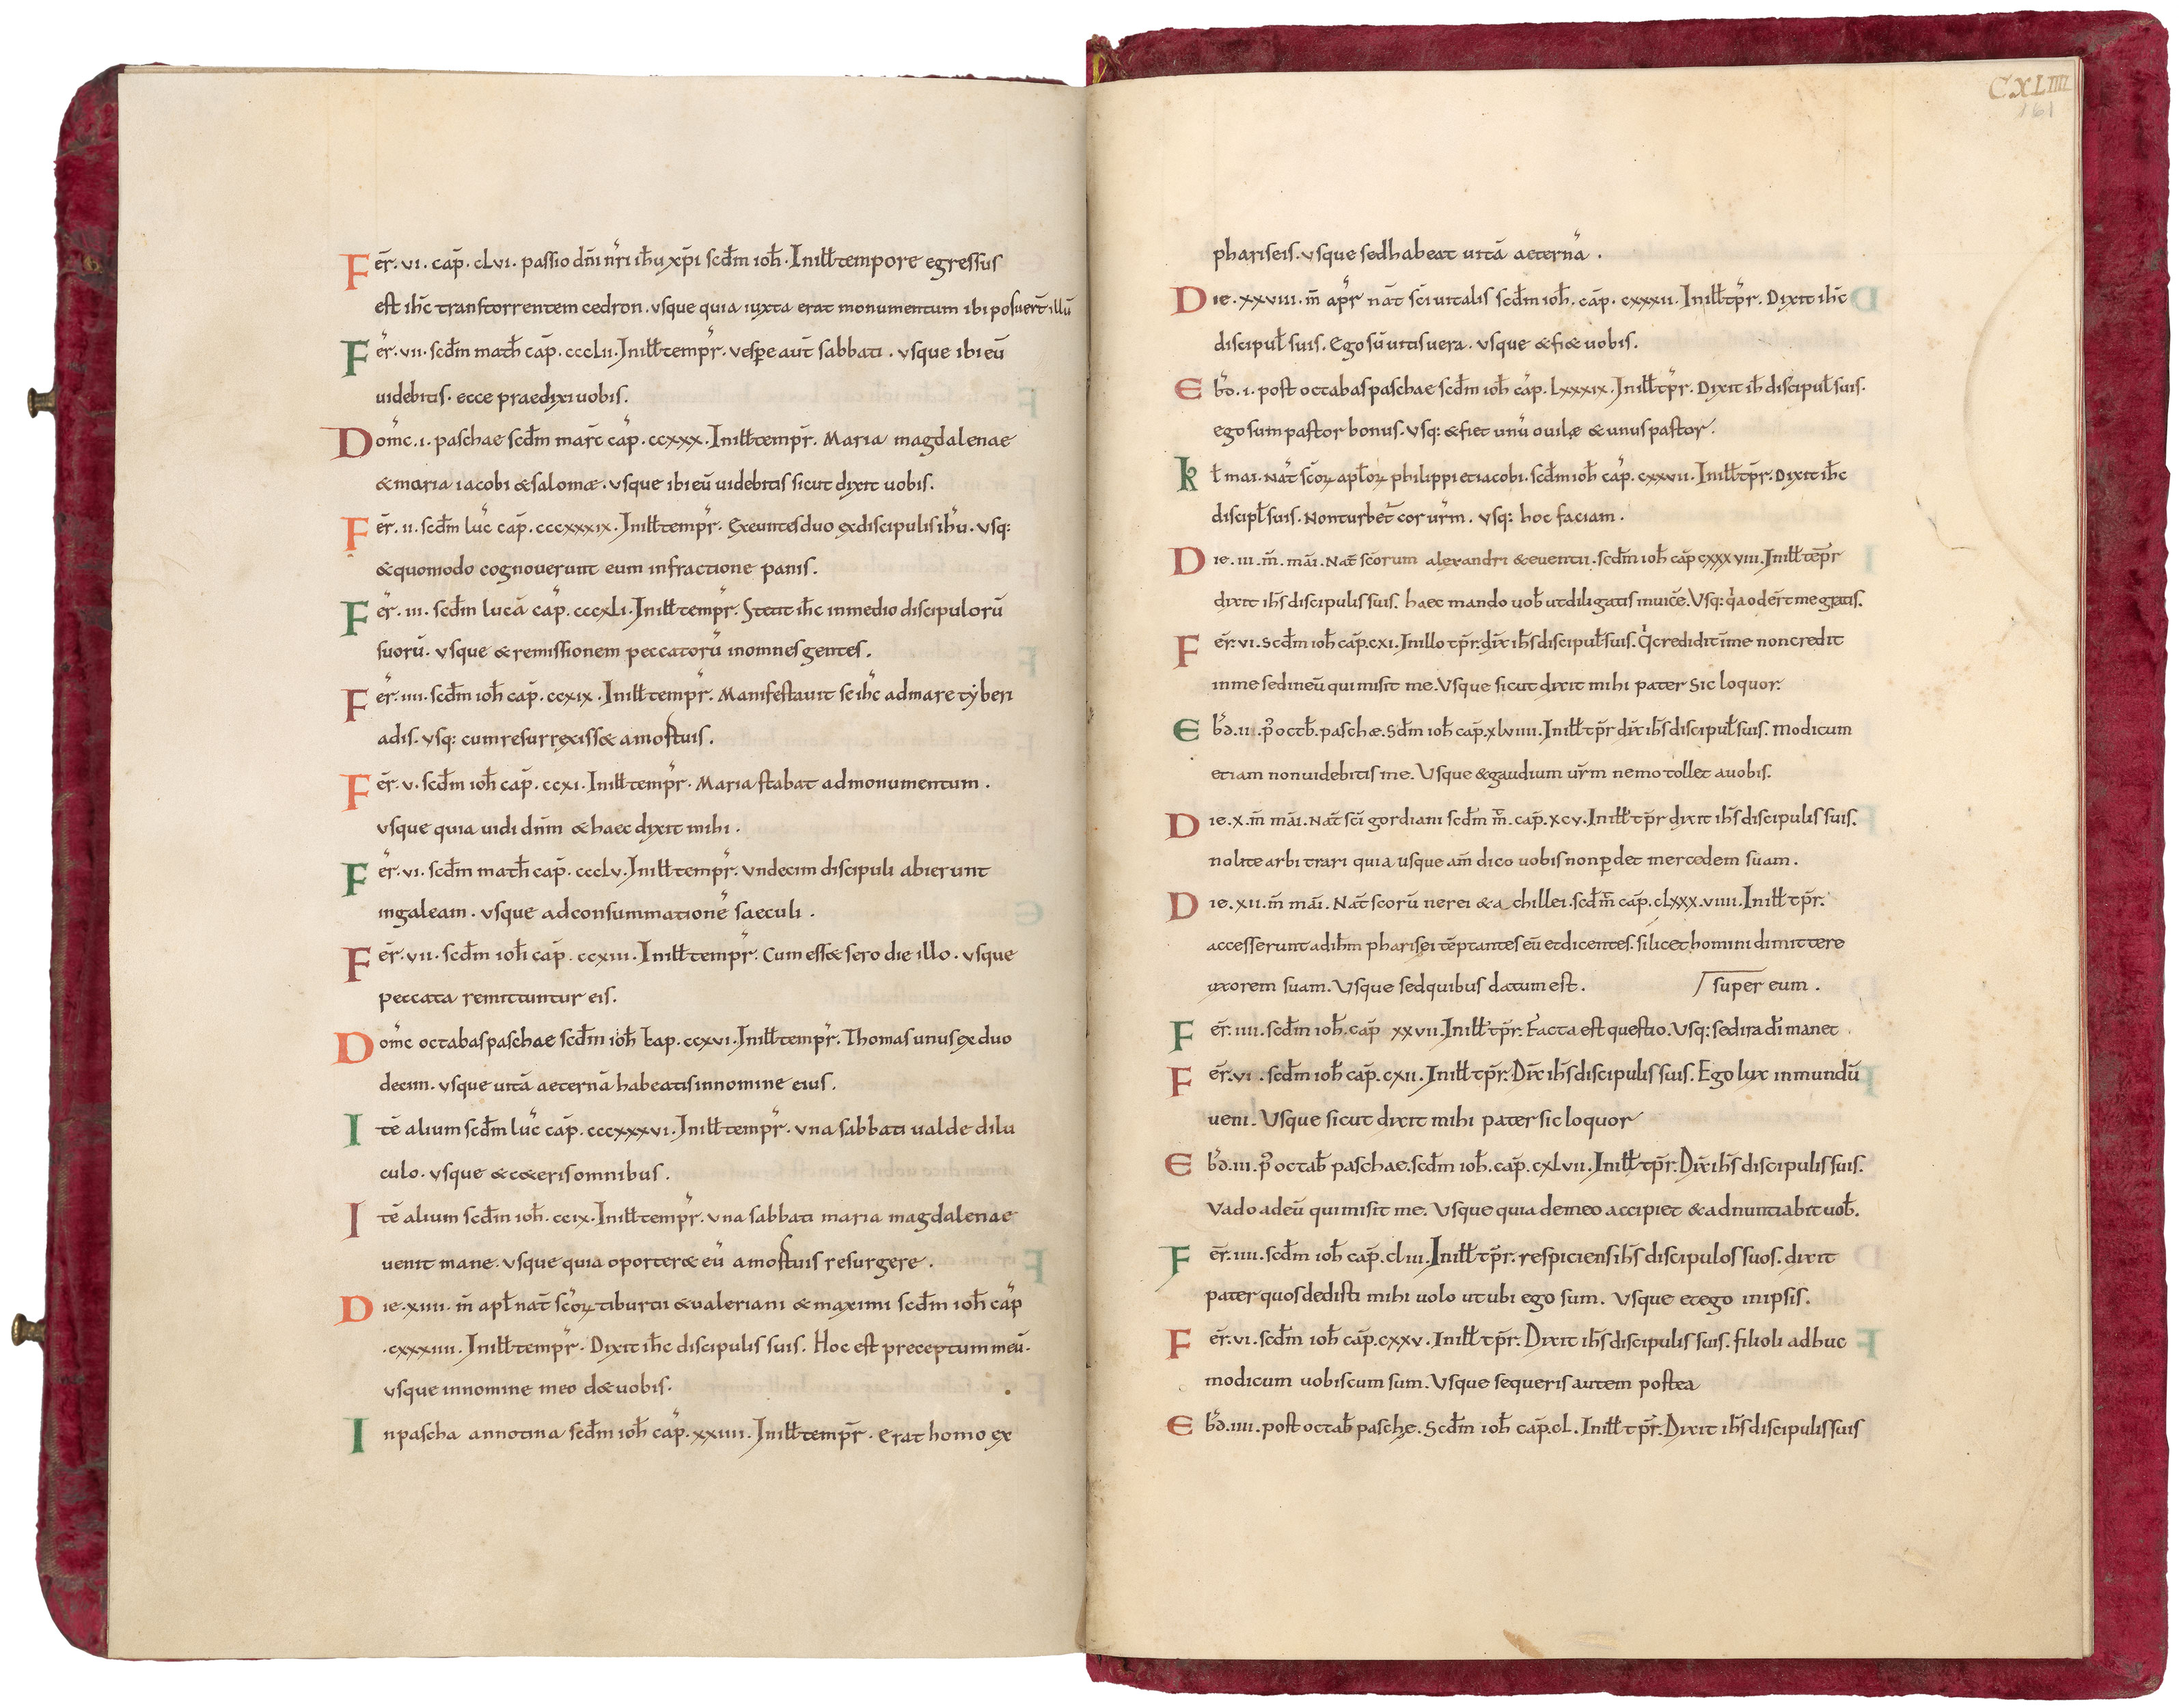 Fer̄. vi. cap̄. clvi. passio dn̄i nr̄i ih̄u xp̄i scd̄m ioh̄. Inill̄ tempore egressus
est ih̄c transtorrentem cedron. vsque quia iuxta erat monumentum ibi posuer̄t illū
Fer̄. vii. scd̄m math̄ cap̄. ccclii. Inill̄ tempr̄. vespe aut̄ sabbati. vsque ibi eū
uidebitis. ecce praedixi uobis.
Dom̄c. i. paschae scd̄m marc̄ cap̄. ccxxx. Inill̄ tempr̄. Maria magdalenae
& maria iacobi & salomæ. vsque ibi eū uidebitis sicut dixit uobis.
Fer̄. ii. scd̄m luc̄ cap̄. cccxxxix. Inill̄ tempr̄. Exeuntes duo exdiscipulis ih̄u. vsq:
& quomodo cognouerunt eum infractione panis.
Fer̄. iii. scd̄m lucā cap̄. cccxli. Inill̄ tempr̄. Stetit ih̄c inmedio discipulorū
suorū. vsque & remissionem peccatorū inomnes gentes.
Fer̄. iiii. scd̄m ioh̄ cap̄. ccxix. Inill̄ tempr̄. Manifestauit se ih̄c admare tẏberi
adis. vsq: cum resurrexiss& amortuis.
Fer̄. v. scd̄m ioh̄ cap̄. ccxi. Inill̄ tempr̄. Maria stabat admonumentum.
vsque quia uidi dn̄m & haec dixit mihi.
Fer̄. vi. scd̄m math̄ cap̄. ccclv. Inill̄ tempr̄. vndecim discipuli abierunt
ingaleam. vsque adconsummationē saeculi.
Fer̄. vii. scd̄m ioh̄ cap̄. ccxiii. Inill̄ tempr̄. Cum ess& sero die illo. vsque
peccata remittuntur eis.
Dom̄c octabas paschae scd̄m ioh̄ kap. ccxvi. Inill̄ tempr̄. Thomas unus ex duo
decim. vsque uitā aeternā habeatis innomine eius.
Itē alium scd̄m luc̄ cap̄. cccxxxvi. Inill̄ tempr̄. vna sabbati ualde dilu
culo. vsque & c&eris omnibus.
Itē alium scd̄m ioh̄. ccix. Inill̄ tempr̄. vna sabbati maria magdalenae
uenit mane. vsque quia oporter& eū amortuis resurgere.
Die. xiiii. m̄ apl̄ nat̄ scōꝝ tiburtii & ualeriani & maximi scd̄m ioh̄ cap̄
.cxxxiiii. Inill̄ tempr̄. Dixit ih̄c discipulis suis. Hoc est preceptum meū.
vsque innomine meo d& uobis.
Inpascha annotina scd̄m ioh̄ cap̄. xxiiii. Inill̄ tempr̄. Erat homo ex
CXLIIII
161
phariseis. vsque sed habeat uitā aeternā.
Die. xxviii. m̄ apr̄ nat̄ sc̄i uitalis scd̄m ioh̄. cap̄. cxxxii. Inill̄ tp̄r. Dixit ih̄c
discipul̄ suis. Ego sū uitis uera. vsque & fi& uobis.
Ebd̄. i. post octabas paschae scd̄m ioh̄ cap̄. lxxxix. Inill̄ tp̄r. Dixit ih̄ discipul̄ suis.
ego sum pastor bonus. vsq: & fiet unū ouilę & unus pastor.
Kl̄ mai. Nat̄ scōꝝ apl̄oꝝ philippi et iacobi. scd̄m ioh̄ cap̄. cxxvii. Inill̄ tp̄r. Dixit ih̄c
discipl̄ suis. Non turbet̄ cor ur̄m. vsq: hoc faciam.
Die. iii. m̄. māi. Nat̄ scōrum alexandri & euentii. scd̄m ioh̄ cap̄ cxxxviii. Inill̄ tēpr̄
dixit ih̄s discipulis suis. haec mando uob̄ ut diligatis inuicē. Vsq: q̇a oder̄t me gratis.
Fer̄. vi. scd̄m ioh̄ cap̄. cxi. Inillo tp̄r. dix̄ ih̄s discipul̄ suis. Q̇ credidit īme non credit
inme sed ineū qui misit me. Vsque sicut dixit mihi pater sic loquor.
Ebd̄. ii. p̄ octb̄. paschæ. Sd̄m ioh̄ cap̄. xlviiii. Inill̄ tp̄r dix̄ ih̄s discipul̄ suis. Modicum
etiam non uidebitis me. Vsque & gaudium ur̄m nemo tollet auobis.
Die. x. m̄ māi. Nat̄ sc̄i gordiani scd̄m m̄. cap̄. xcv. Inill̄ tp̄r dixit ih̄s discipulis suis.
nolite arbitrari quia usque am̄ dico uobis non ꝑdet mercedem suam.
Die. xii. m̄ māi. Nat̄ scorū nerei & achillei. scd̄ m̄ cap̄. clxxx.viiii. Inill̄ tp̄r.
accesserunt ad ih̄m pharisei tēptantes eū et dicentes. si licet homini dimittere
uxorem suam. Vsque sed quibus datum est. super eum.
Fer̄. iiii. scd̄m ioh̄. cap̄ xxvii. Inill̄ tp̄r. Facta est questio. Vsq: sed ira dī manet
Fer̄. vi. scd̄m ioh̄ cap̄. cxii. Inill̄ tp̄r. Dix̄ ih̄s discipulis suis. Ego lux inmundū
ueni. Vsque sicut dixit mihi pater sic loquor
Ebd̄. iii. p̄ octab̄ paschae. scd̄m ioh̄. cap̄. cxlvii. Inill̄ tp̄r. Dix̄ ih̄s discipulis suis.
Vado ad eū qui misit me. Vsque quia demeo accipiet & adnuntiabit uob̄.
Fer̄. iiii. scd̄m ioh̄ cap̄. cliii. Inill̄ tp̄r. respiciens ih̄s discipulos suos. dixit
pater quos dedisti mihi uolo ut ubi ego sum. Vsque et ego inipsis.
Fer̄. vi. scd̄m ioh̄ cap̄. cxxv. Inill̄ tp̄r. Dixit ih̄s discipulis suis. filioli adhuc
modicum uobiscum sum. Vsque sequeris autem postea
Ebd̄. iiii. post octab̄ pasche. Scd̄m ioh̄ cap̄. cl. Inill̄ tp̄r. Dixit ih̄s discipulis suis